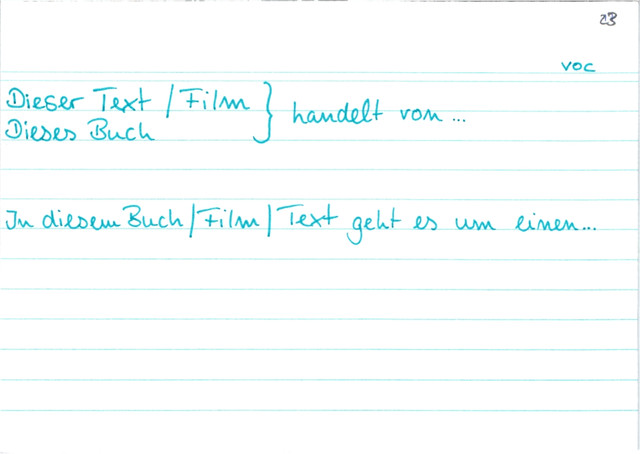 23
VOC
Dieser Text / Film } handelt von...
Dieses Buch
In diesem Buch / Film / Text geht es um einen...